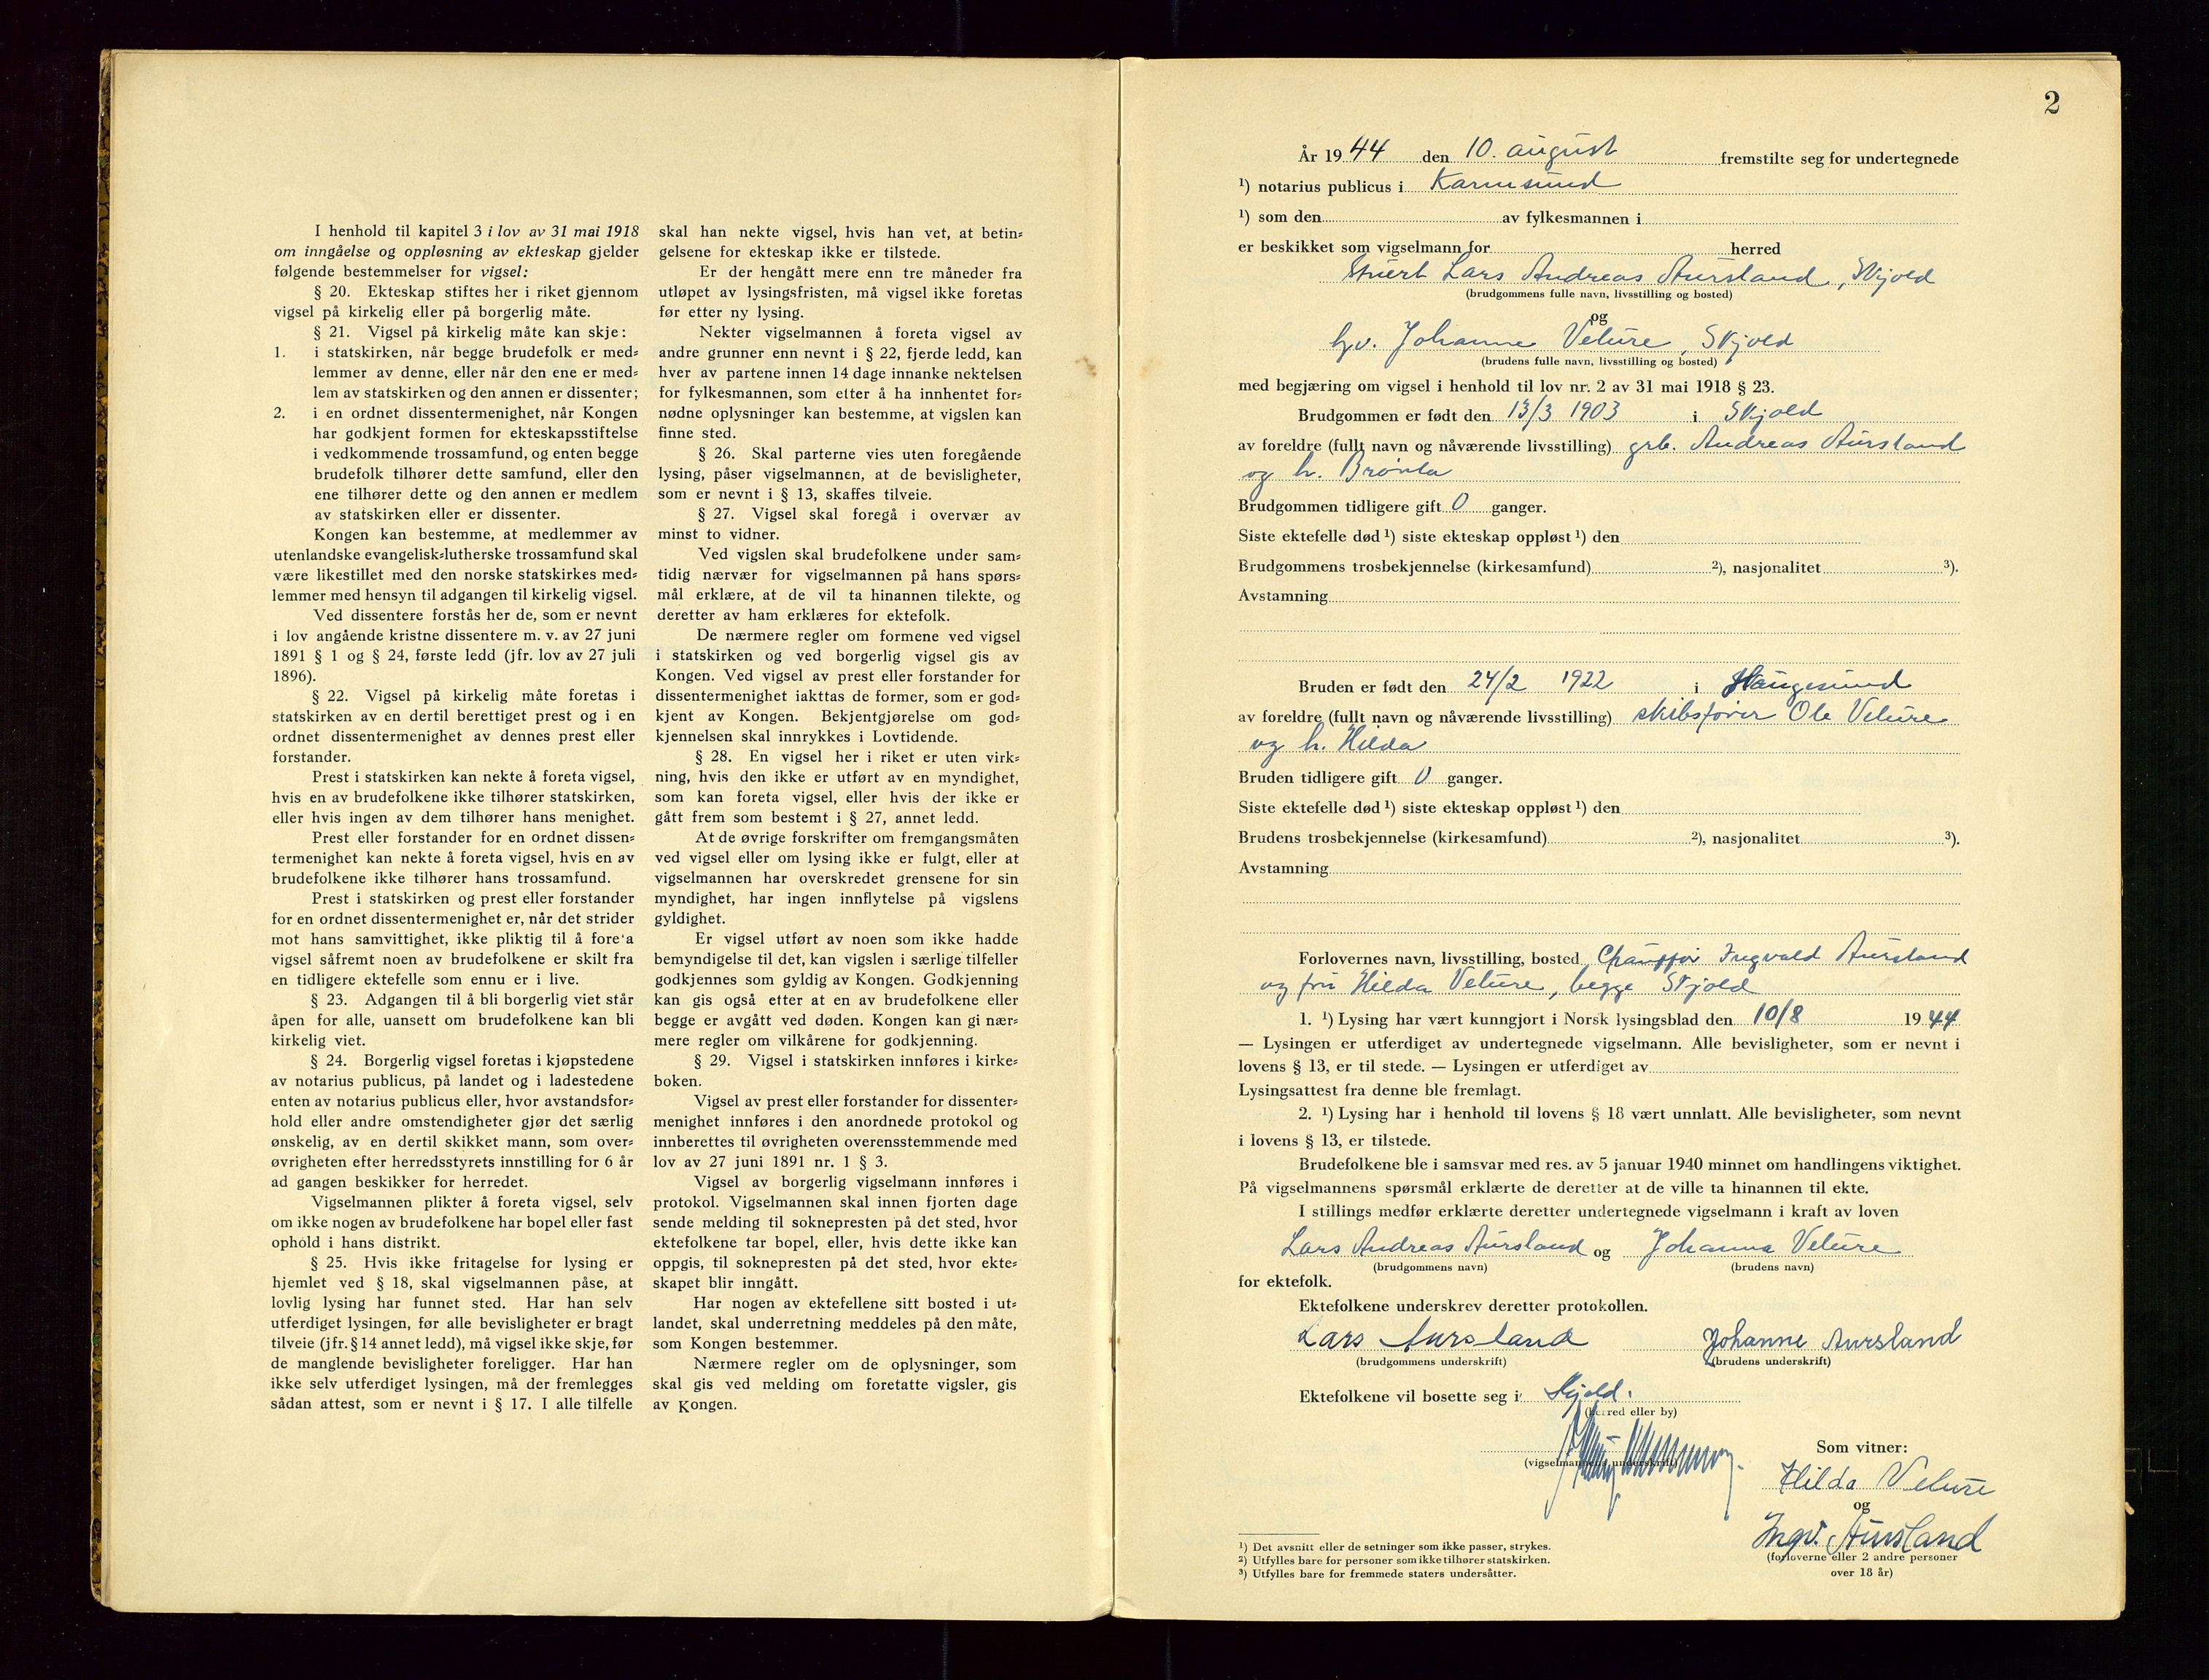 I henhold til kapitel 3 i lov av 31 mai 1918
om inngåelse og oppløsning av ekteskap gjelder
følgende bestemmelser for vigsel:
§ 20. Ekteskap stiftes her i riket gjennom
vigsel på kirkelig eller på borgerlig måte.
§ 21. Vigsel på kirkelig måte kan skje:
1. i statskirken, når begge brudefolk er med=
lemmer av denne, eller når den ene er med=
lem av statskirken og den annen er dissenter;
2. i en ordnet dissentermenighet, når Kongen
har godkjent formen for ekteskapsstiftelse
i vedkommende trossamfund, og enten begge
brudefolk tilhører dette samfund, eller den
ene tilhører dette og den annen er medlem
av statskirken eller er dissenter.
Kongen kan bestemme, at medlemmer av
utenlandske evangelisk=lutherske trossamfund skal
være likestillet med den norske statskirkes med=
lemmer med hensyn til adgangen til kirkelig vigsel.
Ved dissentere forstås her de, som er nevnt
i lov angående kristne dissentere m. v. av 27 juni
1891 § 1 og § 24, første ledd (jfr. lov av 27 juli
1896).
§ 22. Vigsel på kirkelig måte foretas i
statskirken av en dertil berettiget prest og i en
ordnet dissentermenighet av dennes prest eller
forstander.
Prest i statskirken kan nekte å foreta vigsel,
hvis en av brudefolkene ikke tilhører statskirken,
eller hvis ingen av dem tilhører hans menighet.
Prest eller forstander for en ordnet dissen=
termenighet kan nekte å foreta vigsel, hvis en av
brudefolkene ikke tilhører hans trossamfund.
Prest i statskirken og prest eller forstander
for en ordnet dissentermenighet er, når det strider
mot hans samvittighet, ikke pliktig til å fore'a
vigsel såfremt noen av brudefolkene er skilt fra
en tidligere ektefelle som ennu er i live.
§ 23. Adgangen til å bli borgerlig viet står
åpen for alle, uansett om brudefolkene kan bli
kirkelig viet.
§ 24. Borgerlig vigsel foretas i kjøpstedene
av notarius publicus, på landet og i ladestedene
enten av notarius publicus eller, hvor avstandsfor=
hold eller andre omstendigheter gjør det særlig
ønskelig, av en dertil skikket mann, som over=
øvrigheten efter herredsstyrets innstilling for 6 år
ad gangen beskikker for herredet.
Vigselmannen plikter å foreta vigsel, selv
om ikke nogen av brudefolkene har bopel eller fast
ophold i hans distrikt.
§ 25. Hvis ikke fritagelse for lysing er
hjemlet ved § 18, skal vigselmannen påse, at
lovlig lysing har funnet sted. Har han selv
utferdiget lysingen, før alle bevisligheter er bragt
tilveie (jfr. § 14 annet ledd), må vigsel ikke skje, før
de manglende bevisligheter foreligger. Har han
ikke selv utferdiget lysingen, må der fremlegges
sådan attest, som er nevnt i § 17. I alle tilfelle
skal han nekte vigsel, hvis han vet, at betin=
gelsene for ekteskap ikke er tilstede.
Er der hengått mere enn tre måneder fra
utløpet av lysingsfristen, må vigsel ikke foretas
før etter ny lysing.
Nekter vigselmannen å foreta vigsel av
andre grunner enn nevnt i § 22, fjerde ledd, kan
hver av partene innen 14 dage innanke nektelsen
for fylkesmannen, som etter å ha innhentet for=
nødne oplysninger kan bestemme, at vigslen kan
finne sted.
§ 26. Skal parterne vies uten foregående
lysing, påser vigselmannen, at de bevisligheter,
som er nevnt i § 13, skaffes tilveie.
§ 27. Vigsel skal foregå i overvær av
minst to vidner.
Ved vigslen skal brudefolkene under sam=
tidig nærvær for vigselmannen på hans spørs=
mål erklære, at de vil ta hinannen tilekte, og
deretter av ham erklæres for ektefolk.
De nærmere regler om formene ved vigsel
i statskirken og ved borgerlig vigsel gis av
Kongen. Ved vigsel av prest eller forstander for
dissentermenighet iakttas de former, som er god=
kjent av Kongen. Bekjentgjørelse om god=
kjennelsen skal innrykkes i Lovtidende.
§ 28. En vigsel her i riket er uten virk=
ning, hvis den ikke er utført av en myndighet,
som kan foreta vigsel, eller hvis der ikke er
gått frem som bestemt i § 27, annet ledd.
At de øvrige forskrifter om fremgangsmåten
ved vigsel eller om lysing ikke er fulgt, eller at
vigselmannen har overskredet grensene for sin
myndighet, har ingen innflytelse på vigslens
gyldighet.
Er vigsel utført av noen som ikke hadde
bemyndigelse til det, kan vigslen i særlige tilfeller
godkjennes som gyldig av Kongen. Godkjenning
kan gis også etter at en av brudefolkene eller
begge er avgått ved døden. Kongen kan gi nær=
mere regler om vilkårene for godkjenning.
§ 29. Vigsel i statskirken innføres i kirke=
boken.
Vigsel av prest eller forstander for dissenter=
menighet innføres i den anordnede protokol og
innberettes til øvrigheten overensstemmende med
lov av 27 juni 1891 nr. 1 § 3.
Vigsel av borgerlig vigselmann innføres i
protokol. Vigselmannen skal innen fjorten dage
sende melding til soknepresten på det sted, hvor
ektefolkene tar bopel, eller, hvis dette ikke kan
oppgis, til soknepresten på det sted, hvor ekte=
skapet blir inngått.
Har nogen av ektefellene sitt bosted i ut=
landet, skal underretning meddeles på den måte,
som Kongen bestemmer.
Nærmere regler om de oplysninger, som
skal gis ved melding om foretatte vigsler, gis
av Kongen.
2
År 1944 den 10. august fremstilte seg for undertegnede
¹) notarius publicus i Karmsund
¹) som den av fylkesmannen i
er beskikket som vigselmann for herred
Stuert Lars Andreas Aursland, Skjold
(brudgommens fulle navn, livsstilling og bosted)
og
hv. Johanne Veture, Skjold
(brudens fulle navn, livsstilling og bosted)
med begjæring om vigsel i henhold til lov nr. 2 av 31 mai 1918 § 23.
Brudgommen er født den 13/3 1903 i Skjold
av foreldre (fullt navn og nåværende livsstilling) grb. Andreas Aursland
og h. Brønla
Brudgommen tidligere gift 0 ganger.
Siste ektefelle død ¹) siste ekteskap oppløst ¹) den
Brudgommens trosbekjennelse (kirkesamfund) ²), nasjonalitet ³).
Avstamning
Bruden er født den 24/2 1922 i Haugesund
av foreldre (fullt navn og nåværende livsstilling) skibsfører Ole Veture
og h. Hilda
Bruden tidligere gift 0 ganger.
Siste ektefelle død ¹) siste ekteskap oppløst ¹) den
Brudens trosbekjennelse (kirkesamfund) ²), nasjonalitet ³).
Avstamning
Forlovernes navn, livsstilling, bosted Chauffør Ingvald Aursland
og fru Hilda Veture, begge Skjold
1. ¹) Lysing har vært kunngjort i Norsk lysingsblad den 10/8 1944
— Lysingen er utferdiget av undertegnede vigselmann. Alle bevisligheter, som er nevnt i
lovens § 13, er til stede. — Lysingen er utferdiget av
Lysingsattest fra denne ble fremlagt.
2. ¹) Lysing har i henhold til lovens § 18 vært unnlatt. Alle bevisligheter, som nevnt
i lovens § 13, er tilstede.
Brudefolkene ble i samsvar med res. av 5 januar 1940 minnet om handlingens viktighet.
På vigselmannens spørsmål erklærte de deretter at de ville ta hinannen til ekte.
I stillings medfør erklærte deretter undertegnede vigselmann i kraft av loven
Lars Andreas Aursland og Johanna Veture
(brudgommens navn) (brudens navn)
for ektefolk.
Ektefolkene underskrev deretter protokollen.
Lars Aursland Johanne Aursland
(brudgommens underskrift) (brudens underskrift)
Ektefolkene vil bosette seg i Skjold.
(herred eller by)
(vigselmannens underskrift)
Som vitner:
Hilda Veture
og
Ingv. Aursland
(forloverne eller 2 andre personer
over 18 år)
¹) Det avsnitt eller de setninger som ikke passer, strykes.
²) Utfylles bare for personer som ikke tilhører statskirken.
³) Utfylles bare for fremmede staters undersåtter.